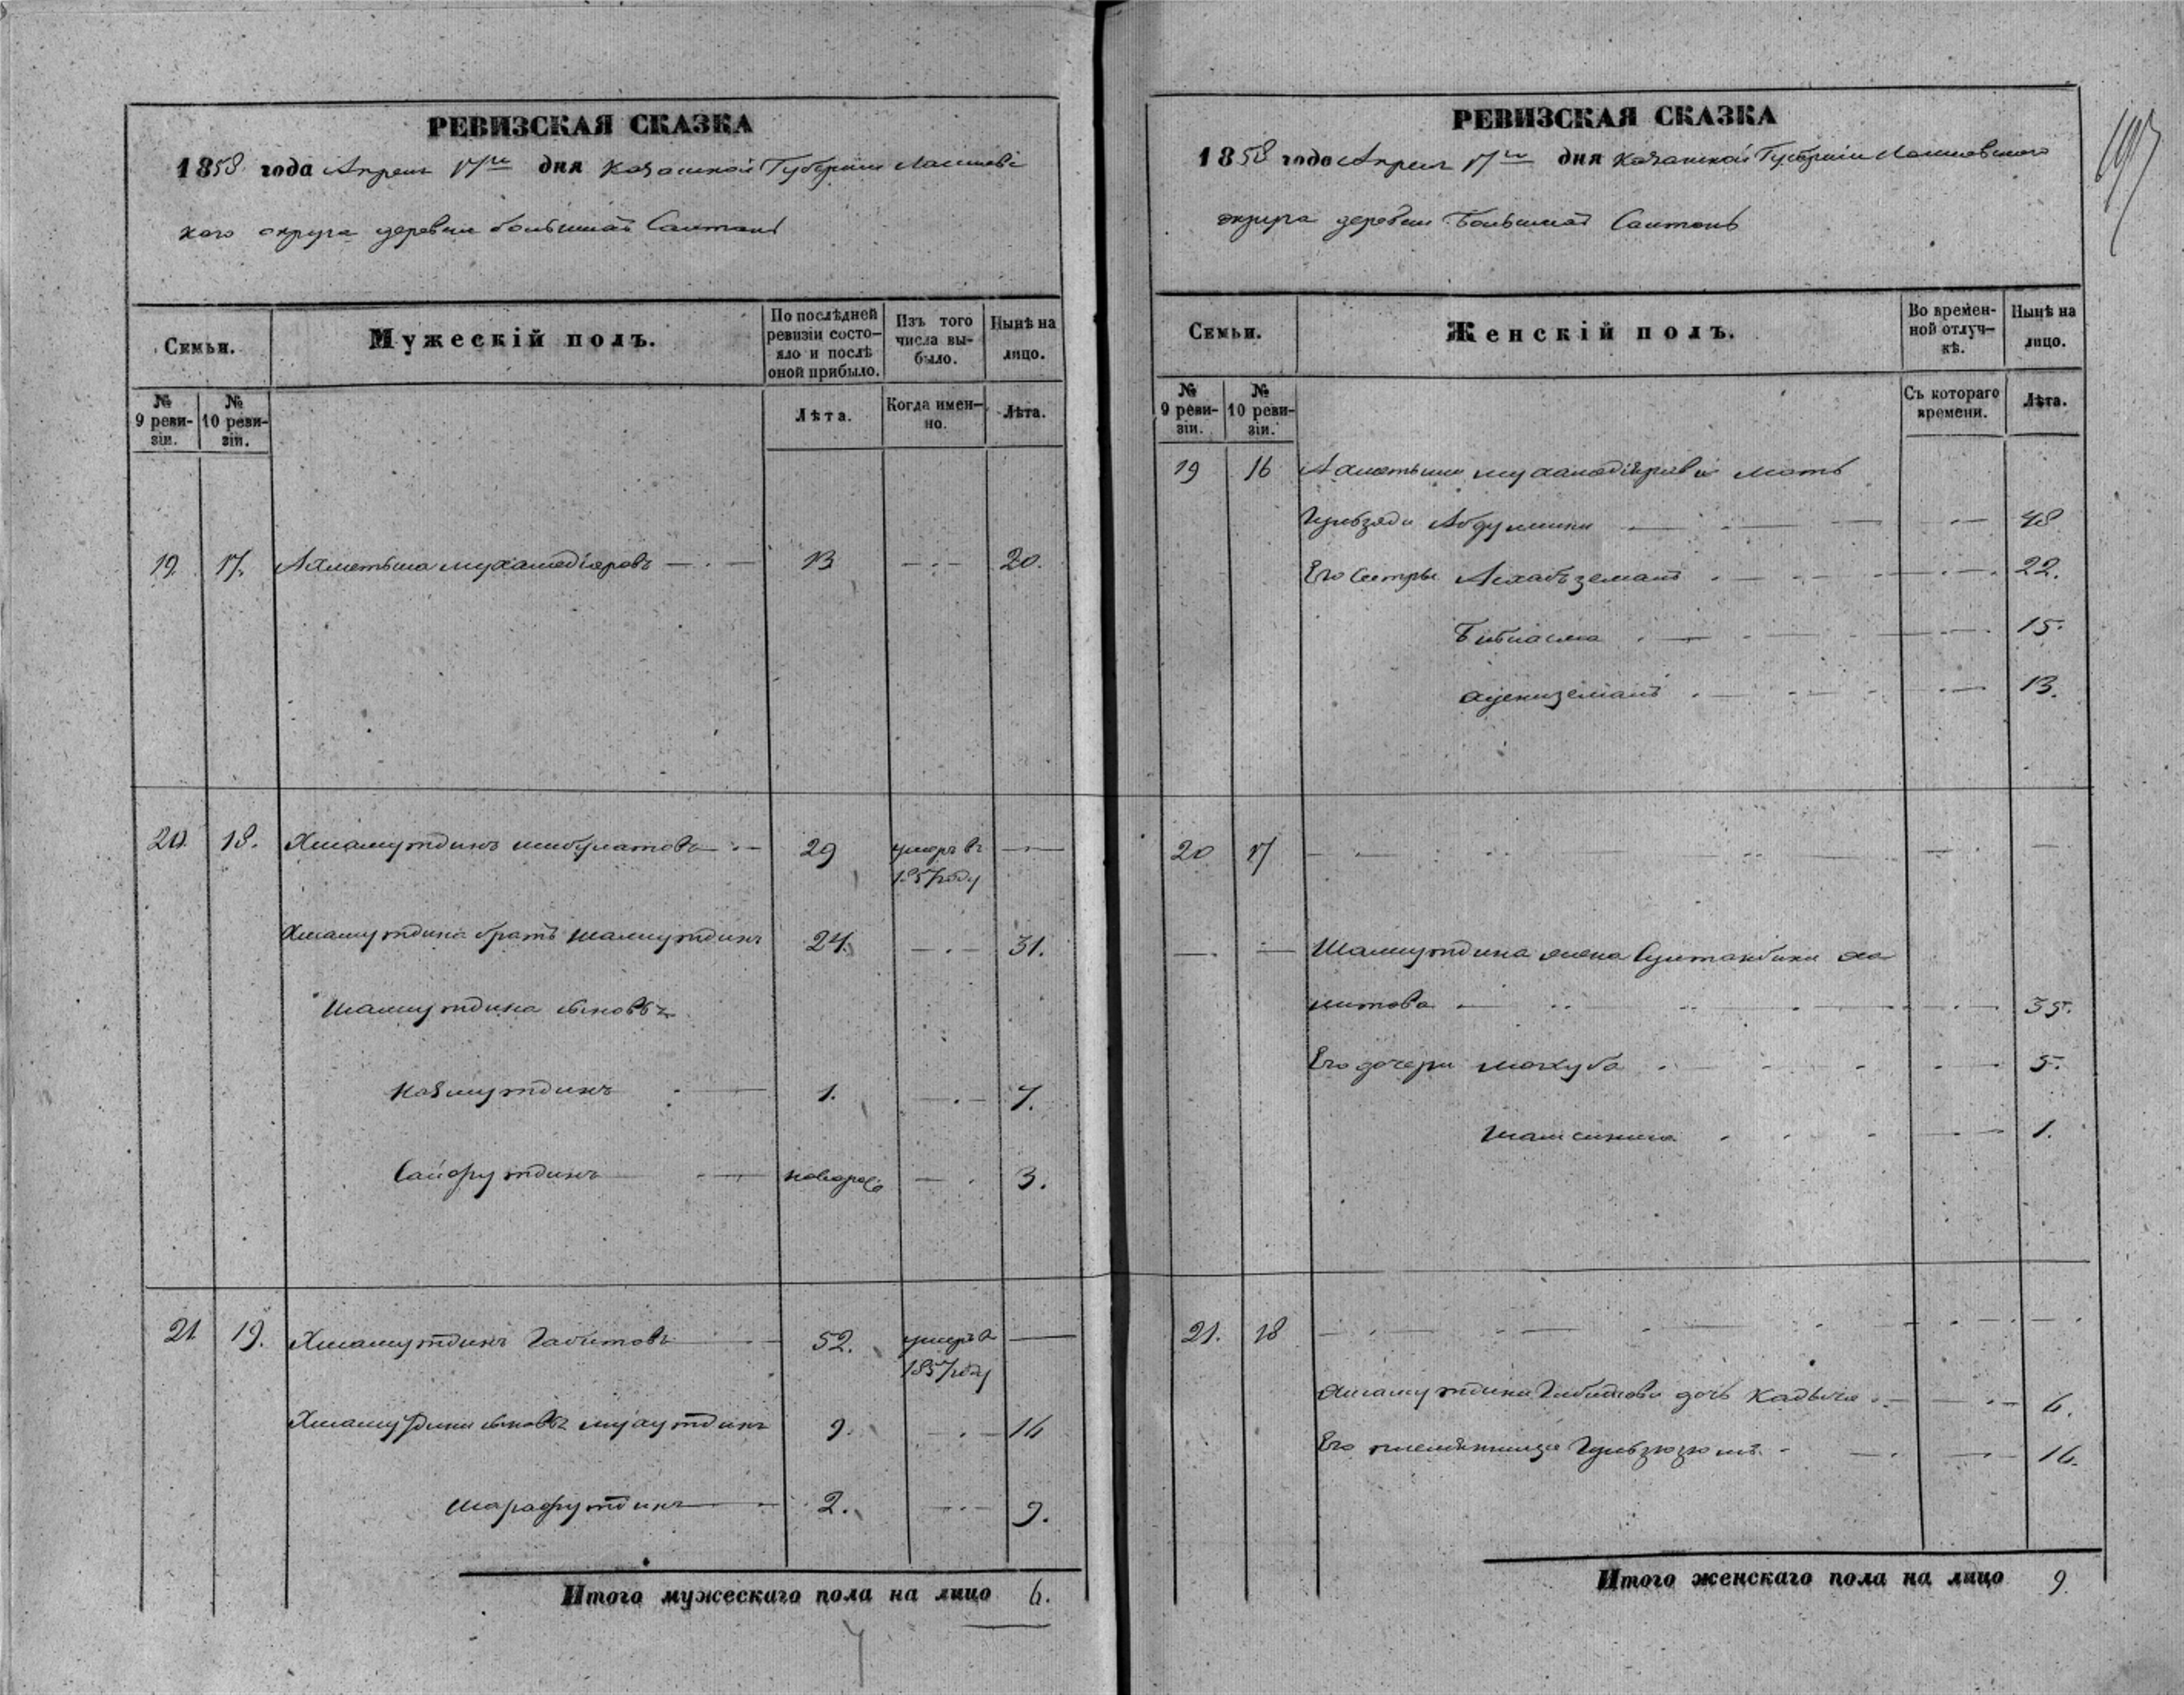 РЕВИЗСКАЯ СКАЗКА
1858 года Апреля 17го дня Казанской Губернии Лаишевс
кого округа деревни большой Салтан
Семьи.
Мужескій полъ.
По послѣдней ревизіи состо-яло и послѣ оной прибыло.
Изъ того числа вы-было.
Нынѣ на лицо.
№ 9 реви-зіи.
№ 10 реви-зіи.
Лѣта.
Когда имен-но.
Лѣта.
19. 17. Ахметьша мухамедіяровъ 13 20.
20. 18. Хисамутдинъ ишбулатовъ 29 умеръ въ
1857 году
Хисамутдина братъ Шамсутдинъ 24. 31.
Шамсутдина сыновья
Назмутдинъ 1. 7.
Сайфутдинъ новорож 3.
21 19. Хисамутдинъ Габитовъ 52. умеръ въ
1857 году
Хисамутдина сыновья муаутдинъ 9. 16
Шарафутдинъ 2. 9.
Итого мужескаго пола на лицо 6.
7
РЕВИЗСКАЯ СКАЗКА
1858 года Апреля 17го дня Казанской Губерніи Лаишевского
округа деревни Большой Салтанъ
197
Семьи.
Женскій полъ.
Во времен-ной отлуч-кѣ.
Нынѣ на лицо.
№ 9 реви-зіи.
№ 10 реви-зіи.
Съ котораго времени.
Лѣта.
19 16 Ахметьши мухамедіярова мать
Гульзяди 48
Его Сестры 22.
Бибиасма 15.
13.
20 17
Шамсутдина жена Султанбика ха
митова 35.
Его дочери махуба 5.
Шамсиниса 1.
21. 18
Хисамутдина Габитова дочь Кадыча 6.
Его племянница Гульзюзюмъ 16.
Итого женскаго пола на лицо 9.